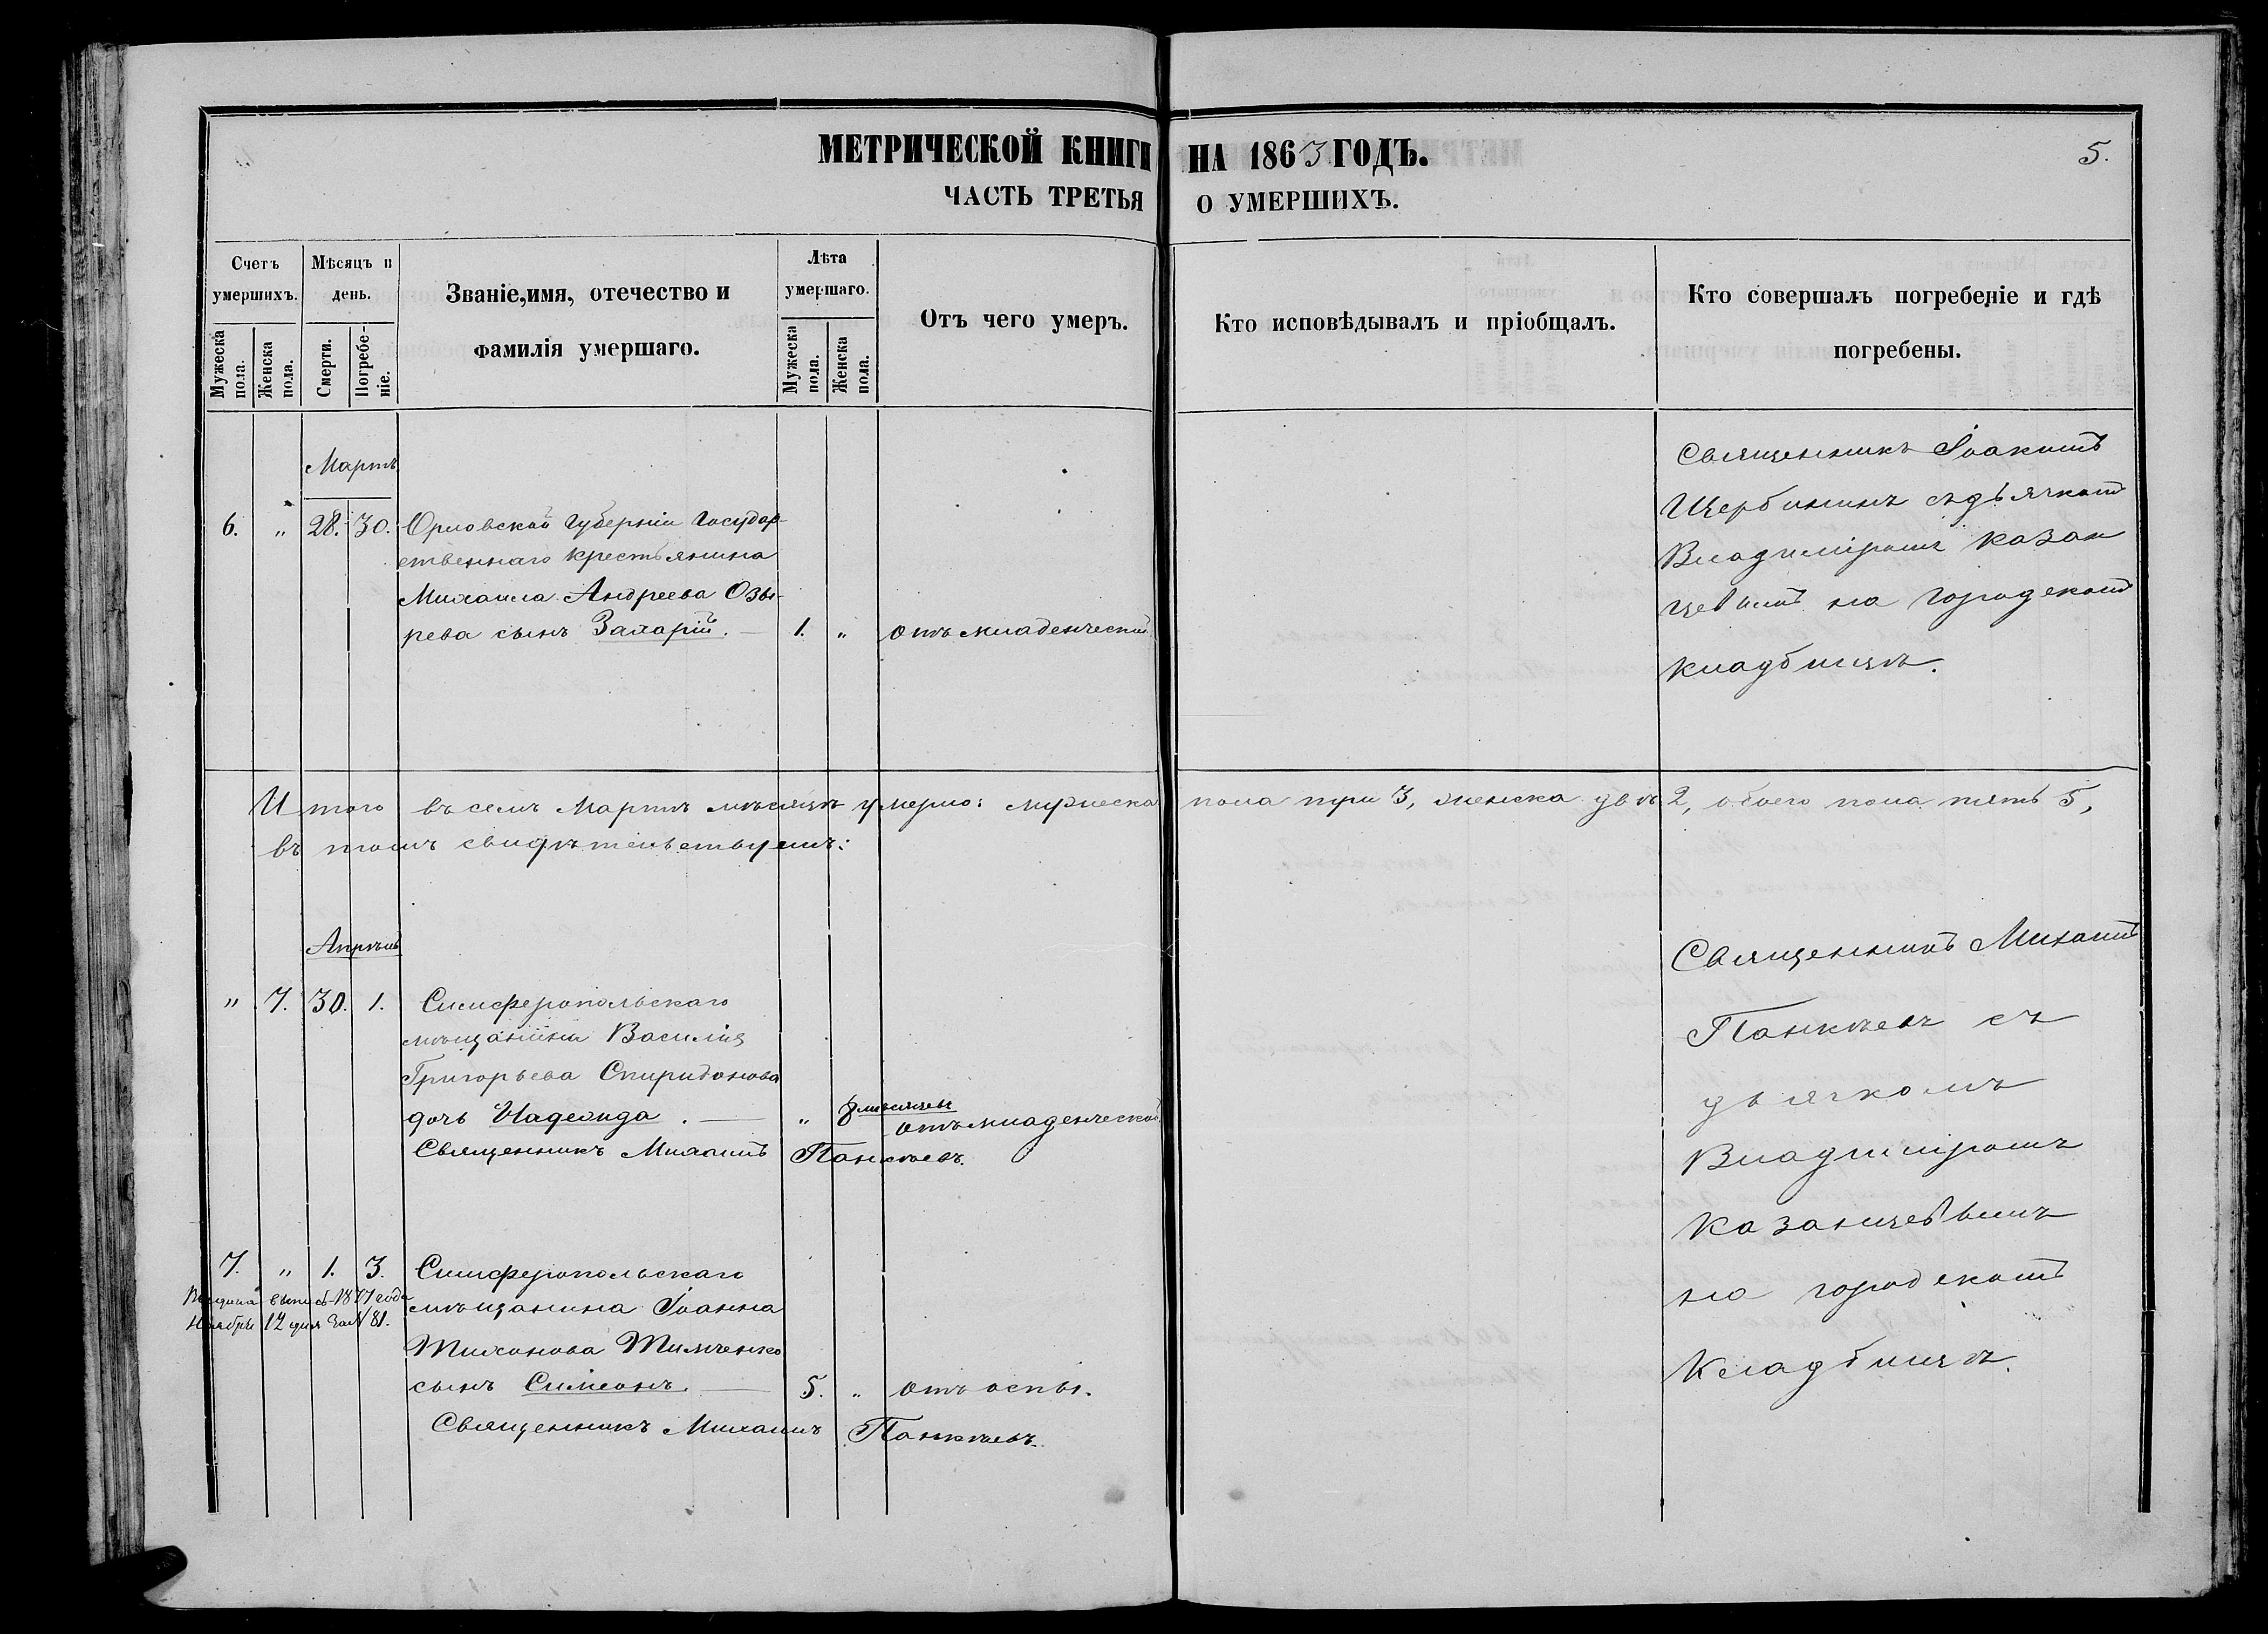 МЕТРИЧЕСКОЙ КНИГИ НА 1863 ГОДЪ.
5.
ЧАСТЬ ТРЕТЬЯ О УМЕРШИХЪ.
Счетъ умершихъ.
Мужеска пола.
Женска пола.
Мѣсяцъ и день.
Смерти.
Погребе-
ніе.
Званіе, имя, отечество и
фамилія умершаго.
Лѣта умершаго.
Мужеска пола.
Женска пола.
Отъ чего умеръ.
Кто исповѣдывалъ и пріобщалъ.
Кто совершалъ погребеніе и гдѣ
погребены.
Мартъ
6. " 28. 30. Орловской губерніи Государ-
ственнаго крестьянина
Михаила Андреева Озы-
рева сынъ Захарій. — 1. " отъ младенческой.
Священникъ Іоакимъ
Щербининъ съ дьячкомъ
Владиміромъ Казан
цевымъ на городскомъ
кладбищѣ.
Итого въ семъ Мартѣ мѣсяцѣ умерло: мужеска пола три 3, женска двѣ 2, обоего пола пять 5,
въ томъ свидѣтельствуемъ:
Апрѣль
" 7. 30. 1. Симферопольскаго
мѣщанина Василія
Григорьева Спиридонова
дочь Надежда. — " 8 мѣсяцевъ отъ младенческой
Священникъ Михаилъ Панкѣевъ.
Священникъ Михаилъ
Панкѣевъ съ
дьячкомъ
Владиміромъ
Казанцевымъ
на городскомъ
Кладбищѣ.
7. " 1. 3. Симферопольскаго
мѣщанина Іоанна
Тихонова Тимченко
сынъ Симеонъ. — 5. " отъ оспы.
Выдана выпись 1877 года
Ноября 12 дня за № 81.
Священникъ Михаилъ Панкѣевъ.